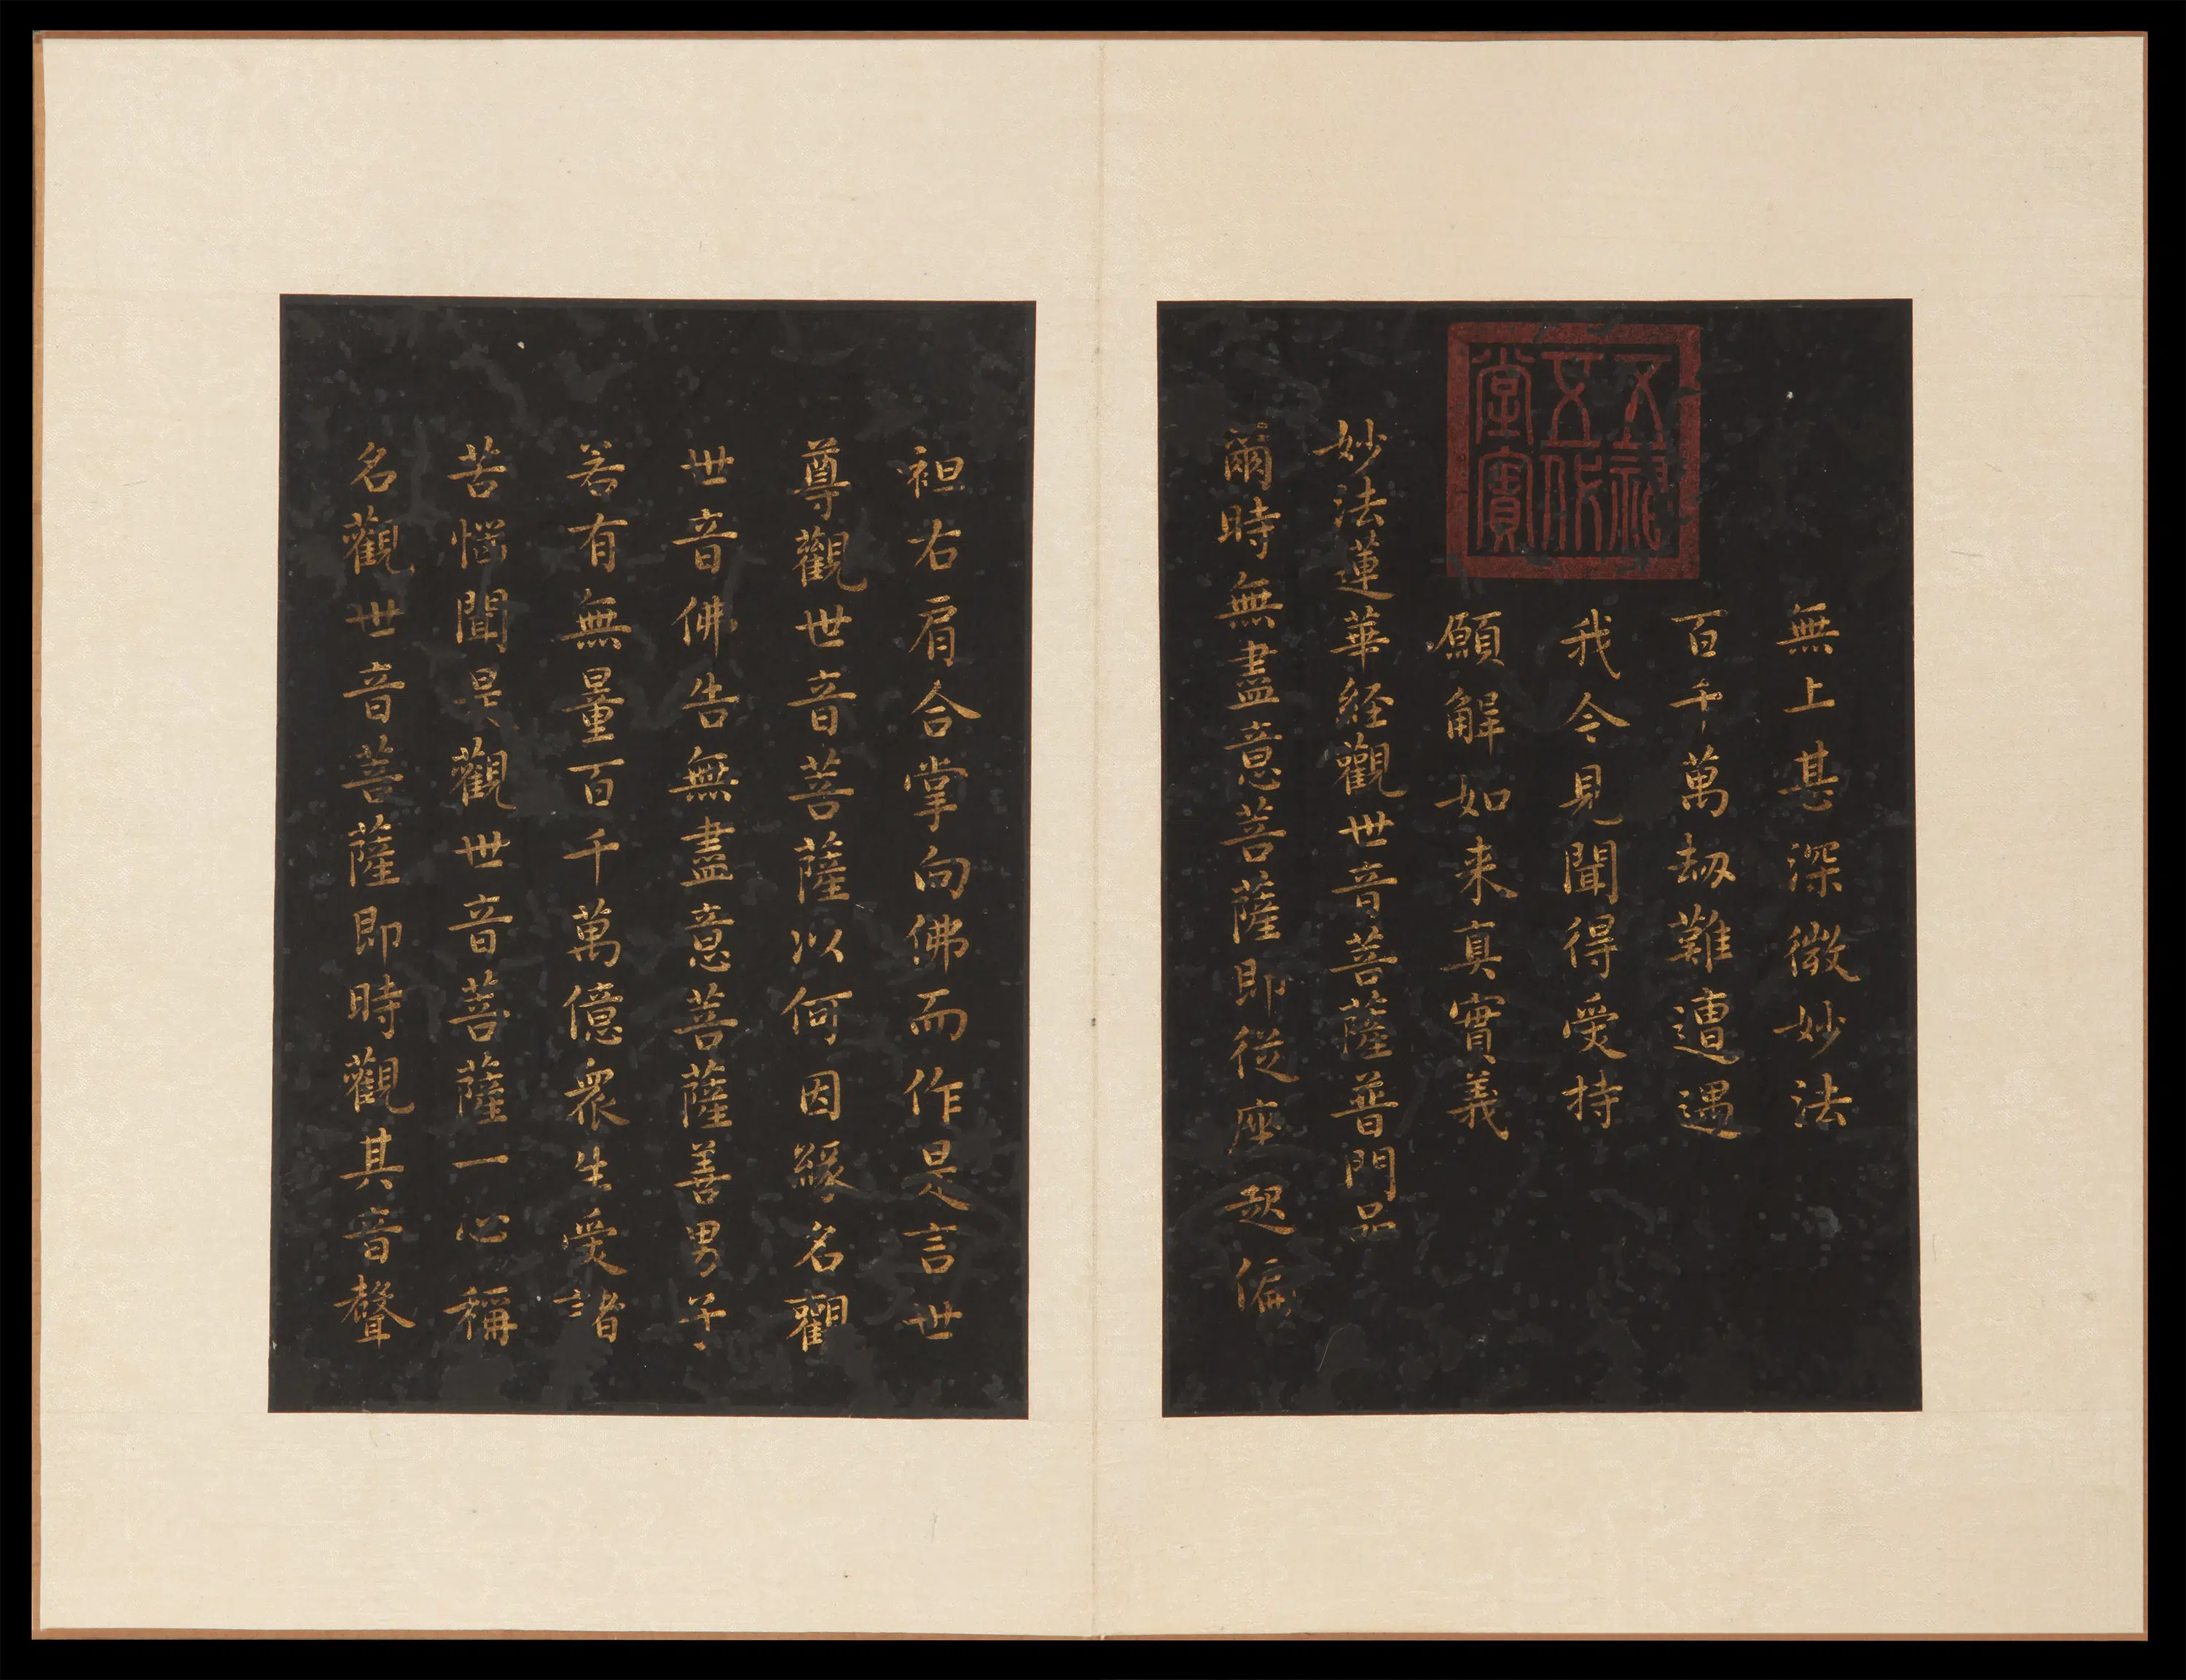 五福
五代
堂寶
無上甚深微妙法
百千萬劫難遭遇
我今見聞得受持
願解如来真實義
妙法蓮華經觀世音菩薩普門品
爾時無盡意菩薩即從座起偏
袒右肩合掌向佛而作是言世
尊觀世音菩薩以何因緣名觀
世音佛告無盡意菩薩善男子
若有無量百千萬億眾生受諸
苦惱聞是觀世音菩薩一心稱
名觀世音菩薩即時觀其音聲